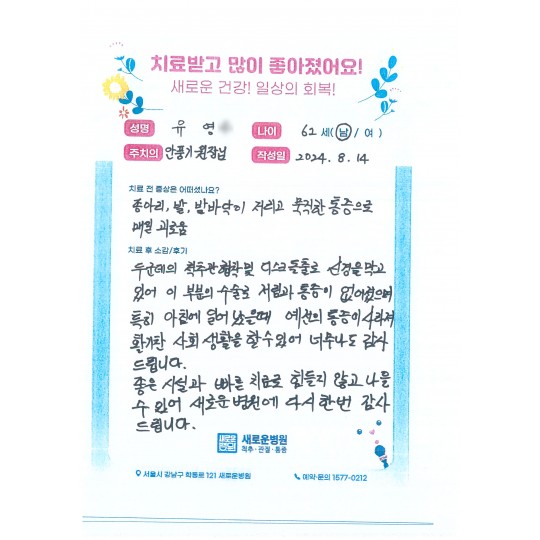 치료받고 많이 좋아졌어요!
새로운 건강! 일상의 회복!
성명 유 영 나이 62 세(남/여)
주치의 안풍기 원장님 작성일 2024. 8. 14
치료 전 증상은 어떠셨나요?
종아리, 발, 발바닥이 저리고 묵직한 통증으로
매일 괴로움
치료 후 소감/후기
두군데의 척추관협착및 디스크돌출로 신경을 막고
있어 이 부분의 수술로 저림과 통증이 없어졌으며
특히 아침에 일어났을때 예전의 통증이 사라져
활기찬 사회 생활을 할수있어 너무나도 감사
드립니다.
좋은 시설과 빠른 치료로 힘들지 않고 나을
수 있어 새로운병원에 다시한번 감사
드립니다.
새로운병원 새로운병원
척추·관절·통증
서울시 강남구 학동로 121 새로운병원 예약·문의 1577-0212